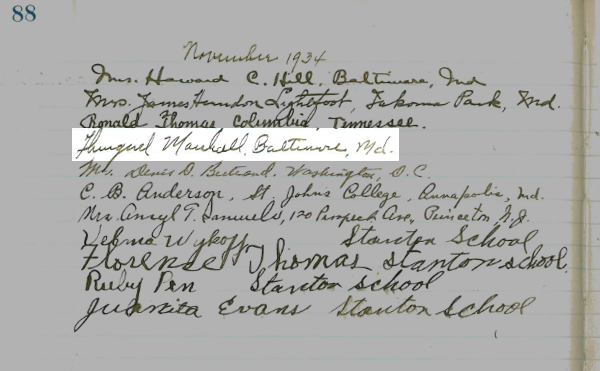 88
November 1934
Mrs. Howard C. Hill. Baltimore, Md
Mrs. James Herndon Lightfoot, Takoma Park, Md.
Ronald Thomas Columbia, Tennessee.
Thurgood Marshall, Baltimore, Md.
Mrs. Denis D. Bertrand. Washington, D.C.
C. B. Anderson, St. Johns College, Annapolis, Md.
Mrs. T. Samuels, 120 Prospect Ave, Princeton N.J.
Velma Wykoff Stanton School
Florense Thomas Stanton School.
Ruby Pen Stanton School
Juanita Evans Stanton School